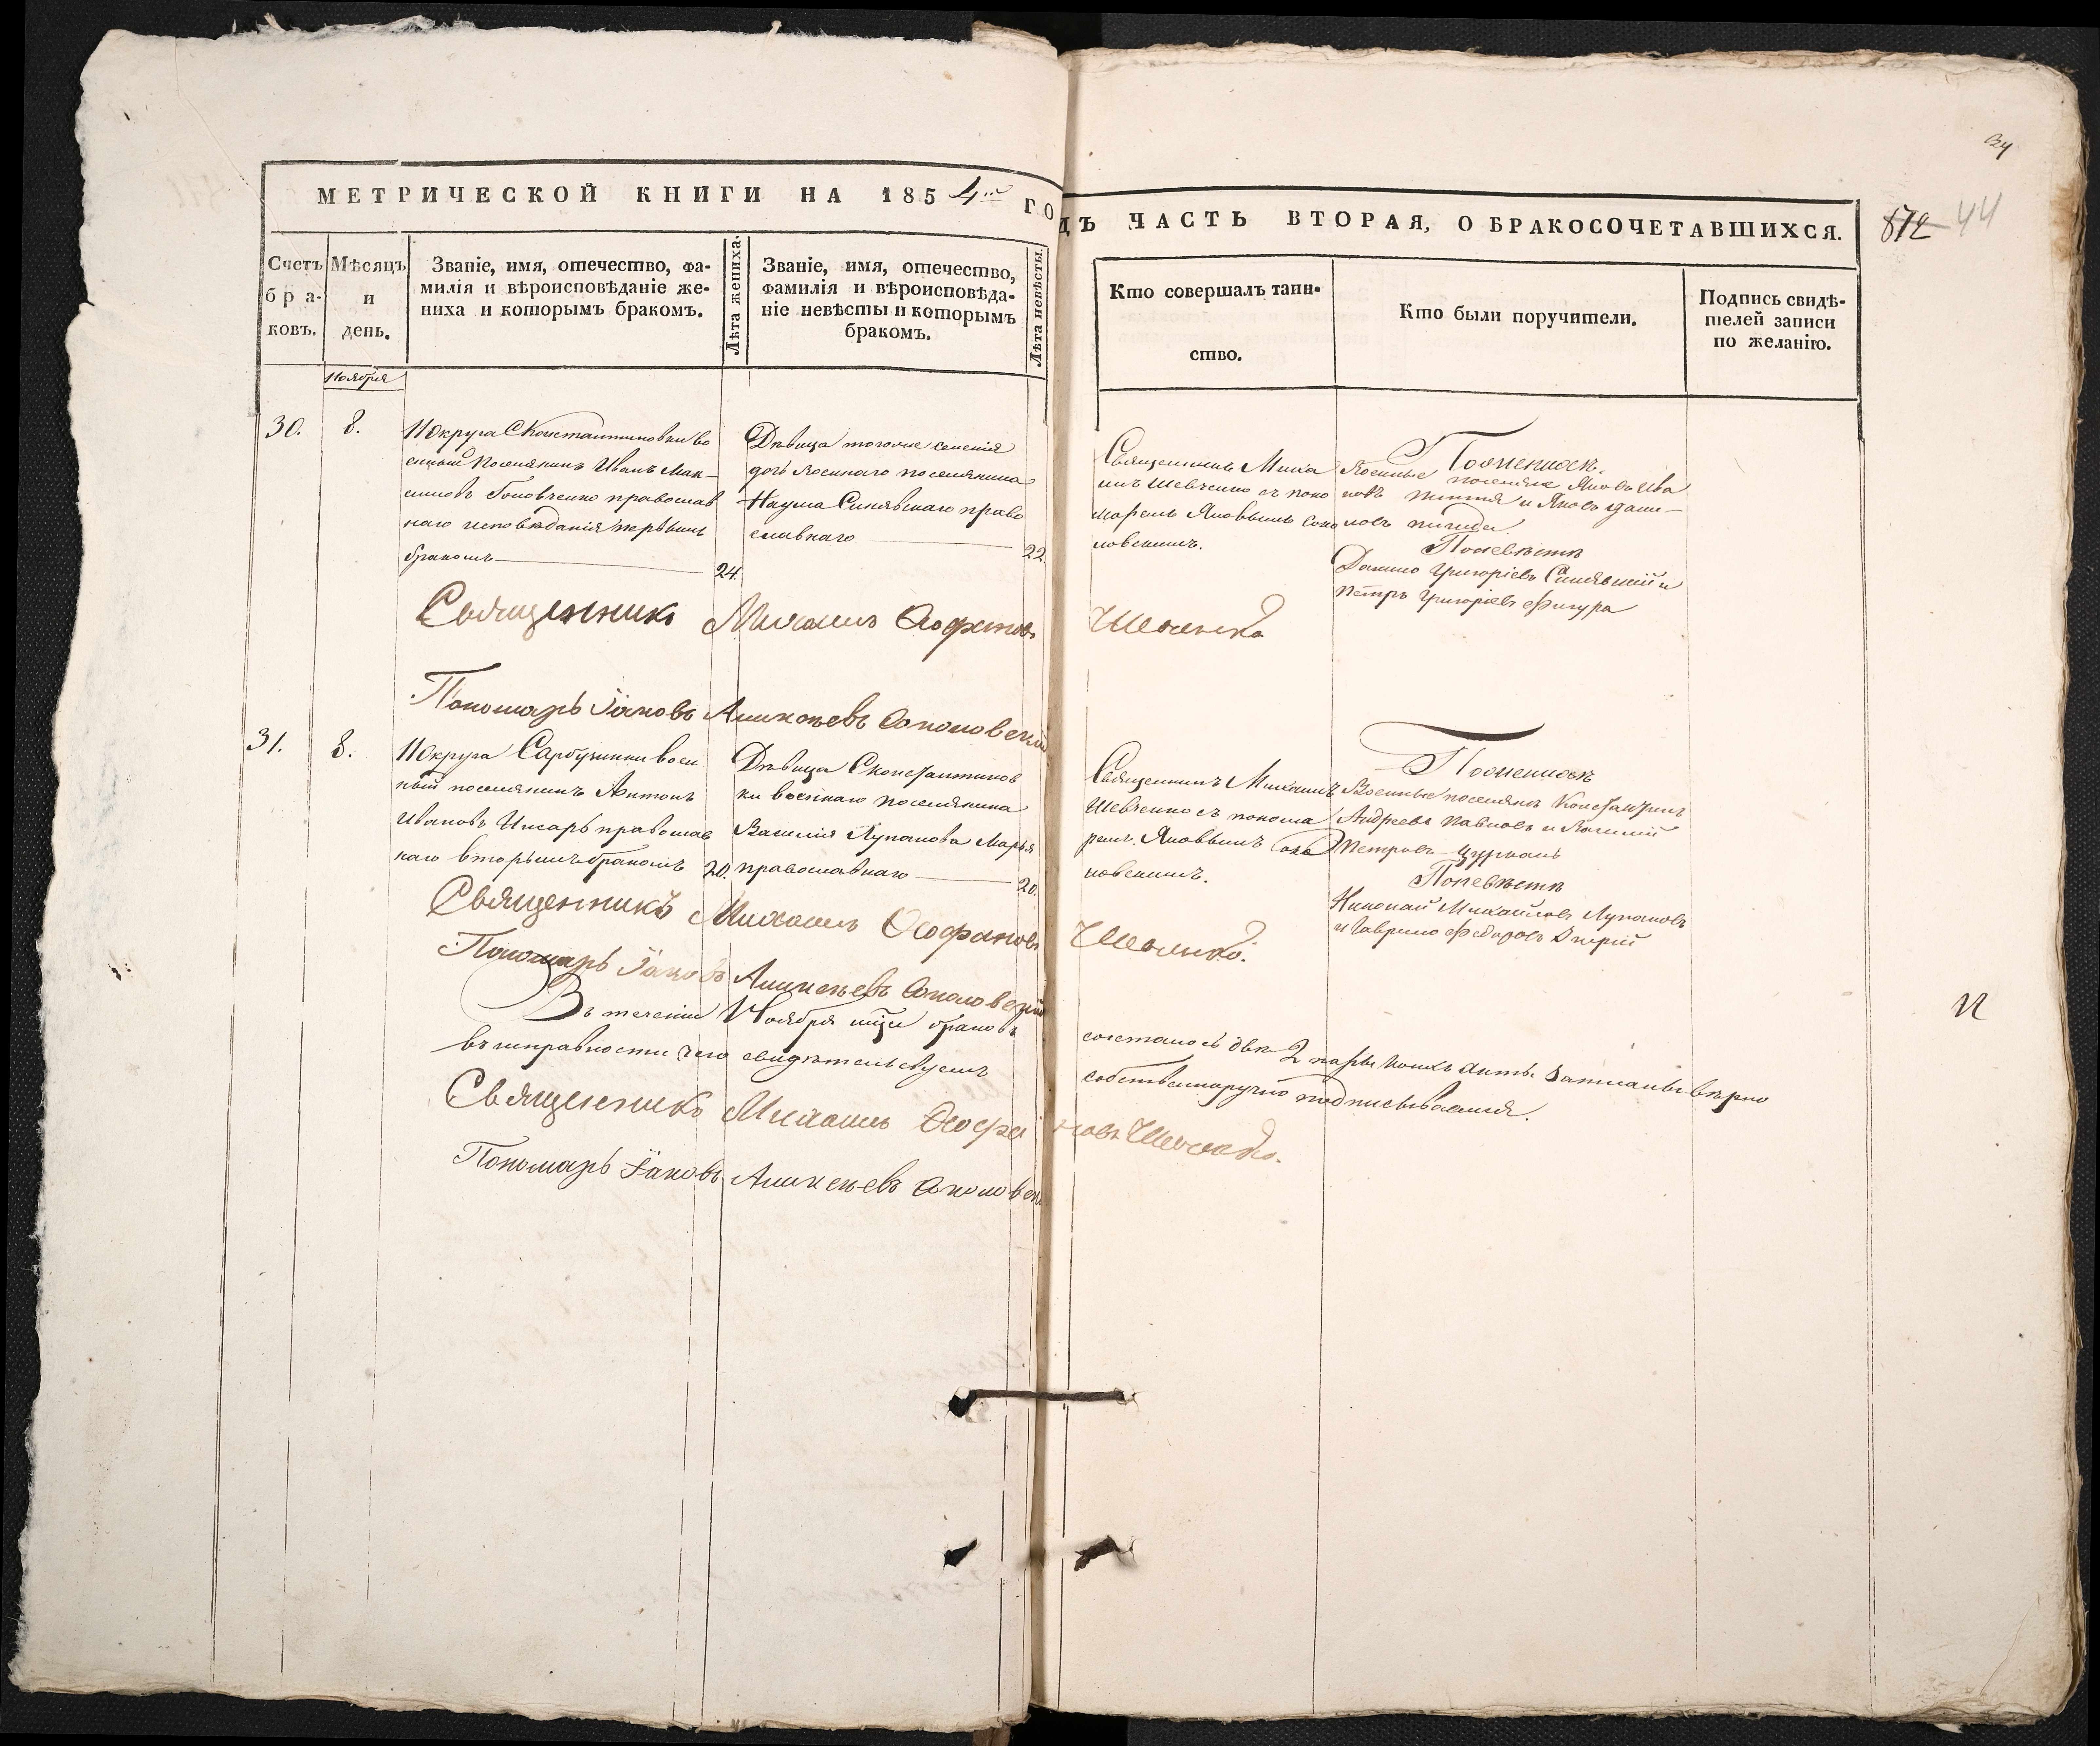 34
МЕТРИЧЕСКОЙ КНИГИ НА 1854 ГОДЪ ЧАСТЬ ВТОРАЯ, О БРАКОСОЧЕТАВШИХСЯ.
872 44
Счетъ бра-ковъ.
Мѣсяцъ и день.
Званіе, имя, отечество, фа-
милія и вѣроисповѣданіе же-
ниха и которымъ бракомъ.
Лѣта жениха.
Званіе, имя, отечество,
фамилія и вѣроисповѣда-
ніе невѣсты и которымъ
бракомъ.
Лѣта невѣсты.
Кто совершалъ таин-
ство.
Кто были поручители.
Подпись свидѣ-
телей записи
по желанію.
Ноября
30. 8.
Округа С Константиновки во
енный Поселянинъ Иванъ Мак-
симовъ Головченко православ
наго исповѣданія первымъ
бракомъ
24.
Дѣвица тогоже селенія
дочь военнаго поселянина
Наума Синявскаго право
славнаго
22.
Священникъ Миха
илъ Шевченко съ поно
маремъ Яковымъ Соко
ловскимъ.
По женихѣ.
Военные поселяне Яковъ Ива
новъ и Яковъ Дани-
ловъ
По невѣстѣ
Данило Григоріевъ Синявскій и
Петръ Григоріевъ Фигура
Священникъ Михаилъ Ѳеофановъ Шевченко
Пономарь Іаковъ Алексѣевъ Соколовскій
31. 8.
Округа Сарбучинки воен
ный поселянинъ Антонъ
Ивановъ Писарь православ
наго вторымъ бракомъ
20.
Дѣвица С Константинов
ки военнаго поселянина
Василія Лупанова Марья
православнаго
20.
Священникъ Михаилъ
Шевченко съ понома
ремъ Яковымъ Соко
ловскимъ.
По женихѣ
Военные поселяне Константинъ
Андреевъ Павловъ и
Петровъ Цуркань
По невѣстѣ
Николай Михайловъ Лупановъ
и Гаврило Федоровъ
Священникъ Михаилъ Ѳеофановъ Шевченко.
Пономарь Іаковъ Алексѣевъ Соколовскій
Въ теченіи Ноября мца браковъ сочеталось двѣ 2 пары коихъ акты записаны вѣрно
въ исправности чего свидѣтельствуемъ собственноручно подписываемся.
Священникъ Михаилъ Ѳеофановъ Шевченко.
Пономарь Іаковъ Алексѣевъ Соколовск